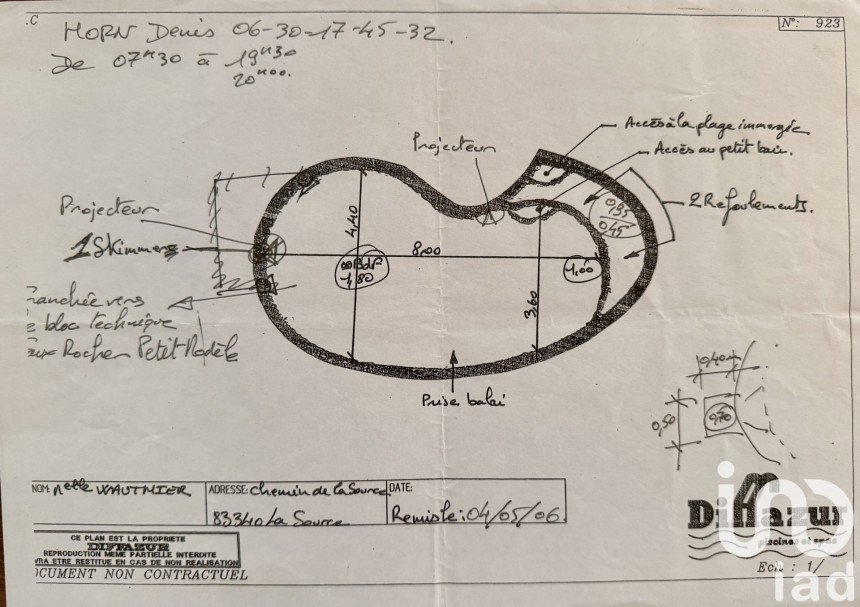 .C
N°: 923
HORN Denis 06-30-17-45-32.
De 07H30 à 19H30
20H00.
Accès à la plage immergée
Projecteur
Accès au petit bain.
Projecteur
0,35
0,45
2 Refoulements.
1 Skimmers
4,40
8,00
BdF
1,80
1,00
3,60
ranchée vers
bloc technique
Rocher Petit Modèle
Prise balai
0,40
0,50
0,70
NOM: Melle WAUTHIER
ADRESSE: Chemin de la Source
83340 La Source
DATE:
Remis le: 04/05/06
CE PLAN EST LA PROPRIETE
DIFFAZUR
REPRODUCTION MEME PARTIELLE INTERDITE
VRA ETRE RESTITUE EN CAS DE NON REALISATION
OCUMENT NON CONTRACTUEL
Diffazur
piscines et spas
Ech : 1/
iad